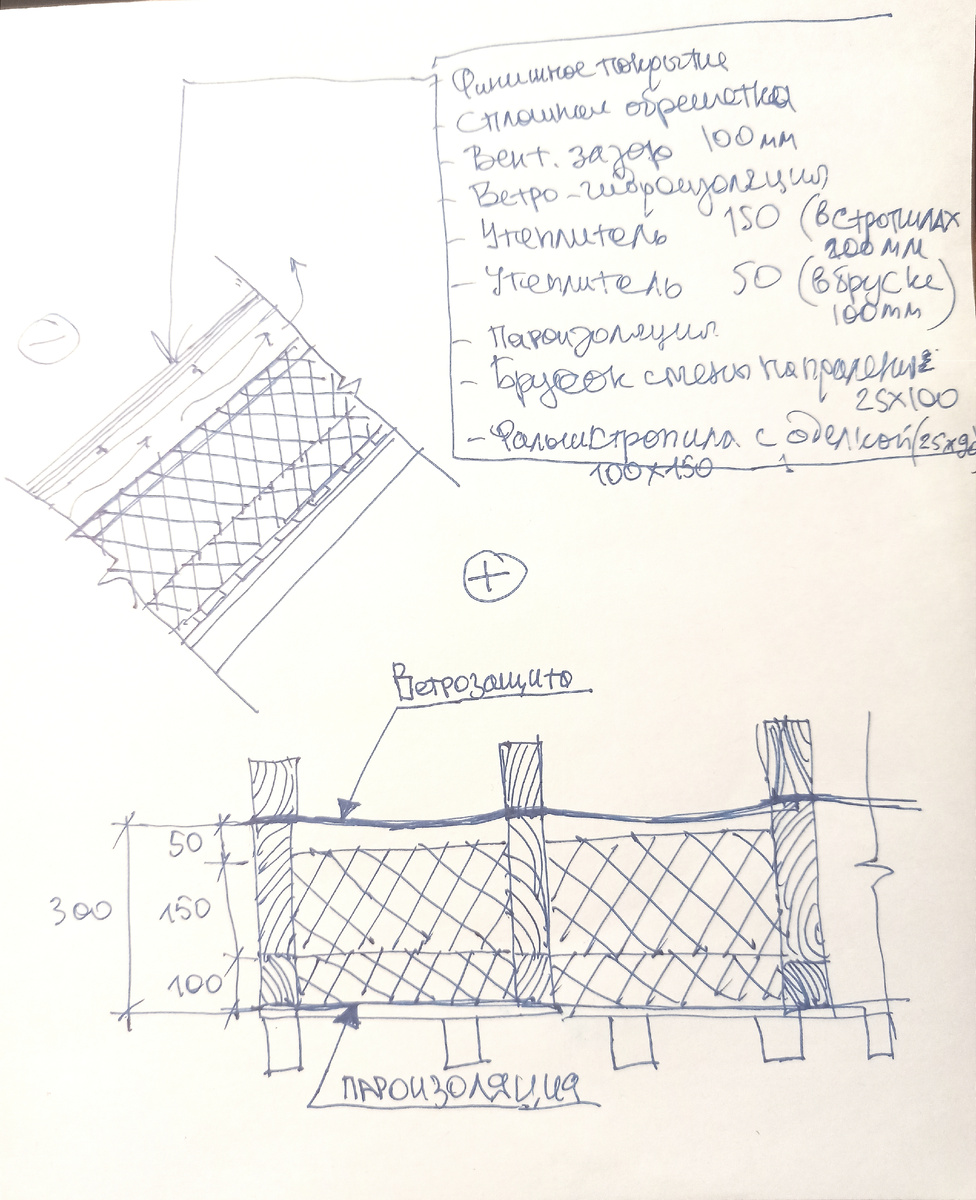 Финишное покрытие
- Сплошная обрешатка
- Вент. зазор 100мм
- Ветро-гидроизоляция
- Утеплитель 150 (в стропилах
200мм
- Утеплитель 50 (в бруске)
100мм
- Пароизоляция
- Брусок смены
25х100
- Фальшстропила с оделкой (25х90
100х150
−
+
Ветрозащита
50
300
150
100
ПАРОИЗОЛЯЦИЯ